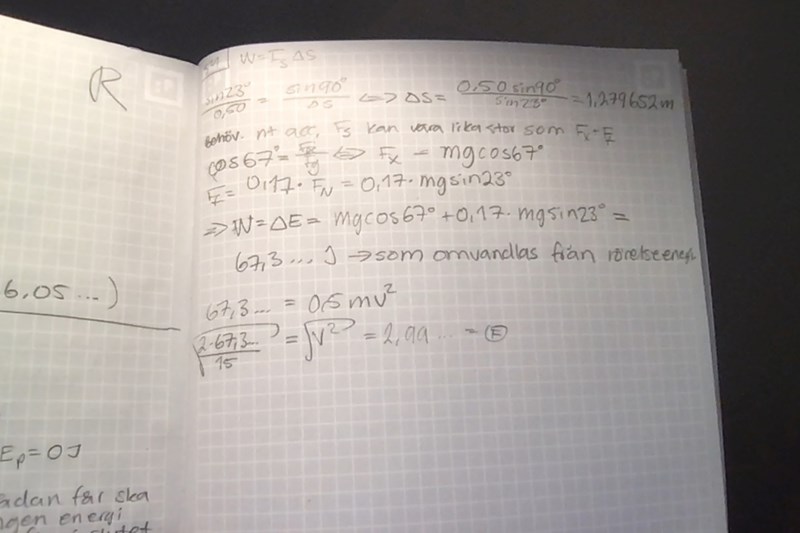 R
6.05...)
Ep=0J
ådan får ska
ngen energi
W=Fs ΔS
sin23°/0,50 = sin90°/ΔS <=> ΔS= 0,50 sin90°/sin23° =1,279652m
Behöv. nt acc, Fs kan vara lika stor som
cos67°= Fx/Fg <=> Fx = mgcos67°
= 0,17· FN = 0,17· mgsin23°
=> W=ΔE= mgcos67°+0,17· mgsin23° =
67,3... J → som omvandlas från rörelseenergi
67,3... = 0,5 mv²
√(2·67,3.../15) = √v² = 2,99... = Ⓕ